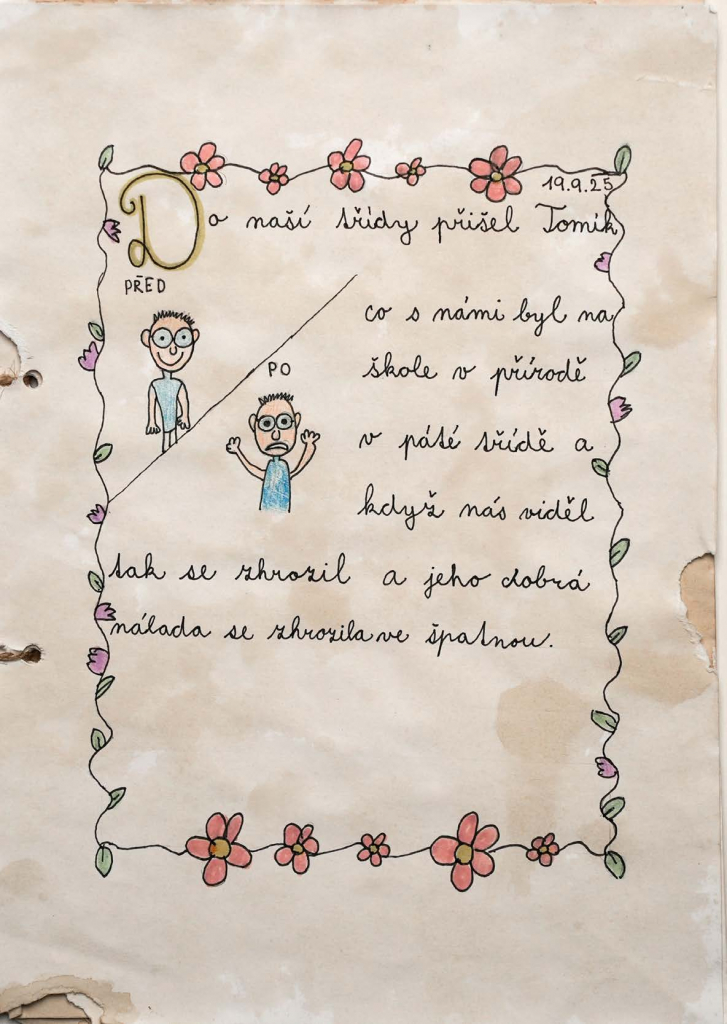 19.9.25
Do naší třídy přišel Tomík
PŘED
co s námi byl na
PO
škole v přírodě
v páté třídě a
když nás viděl
tak se zhrozil a jeho dobrá
nálada se zhrozila ve špatnou.